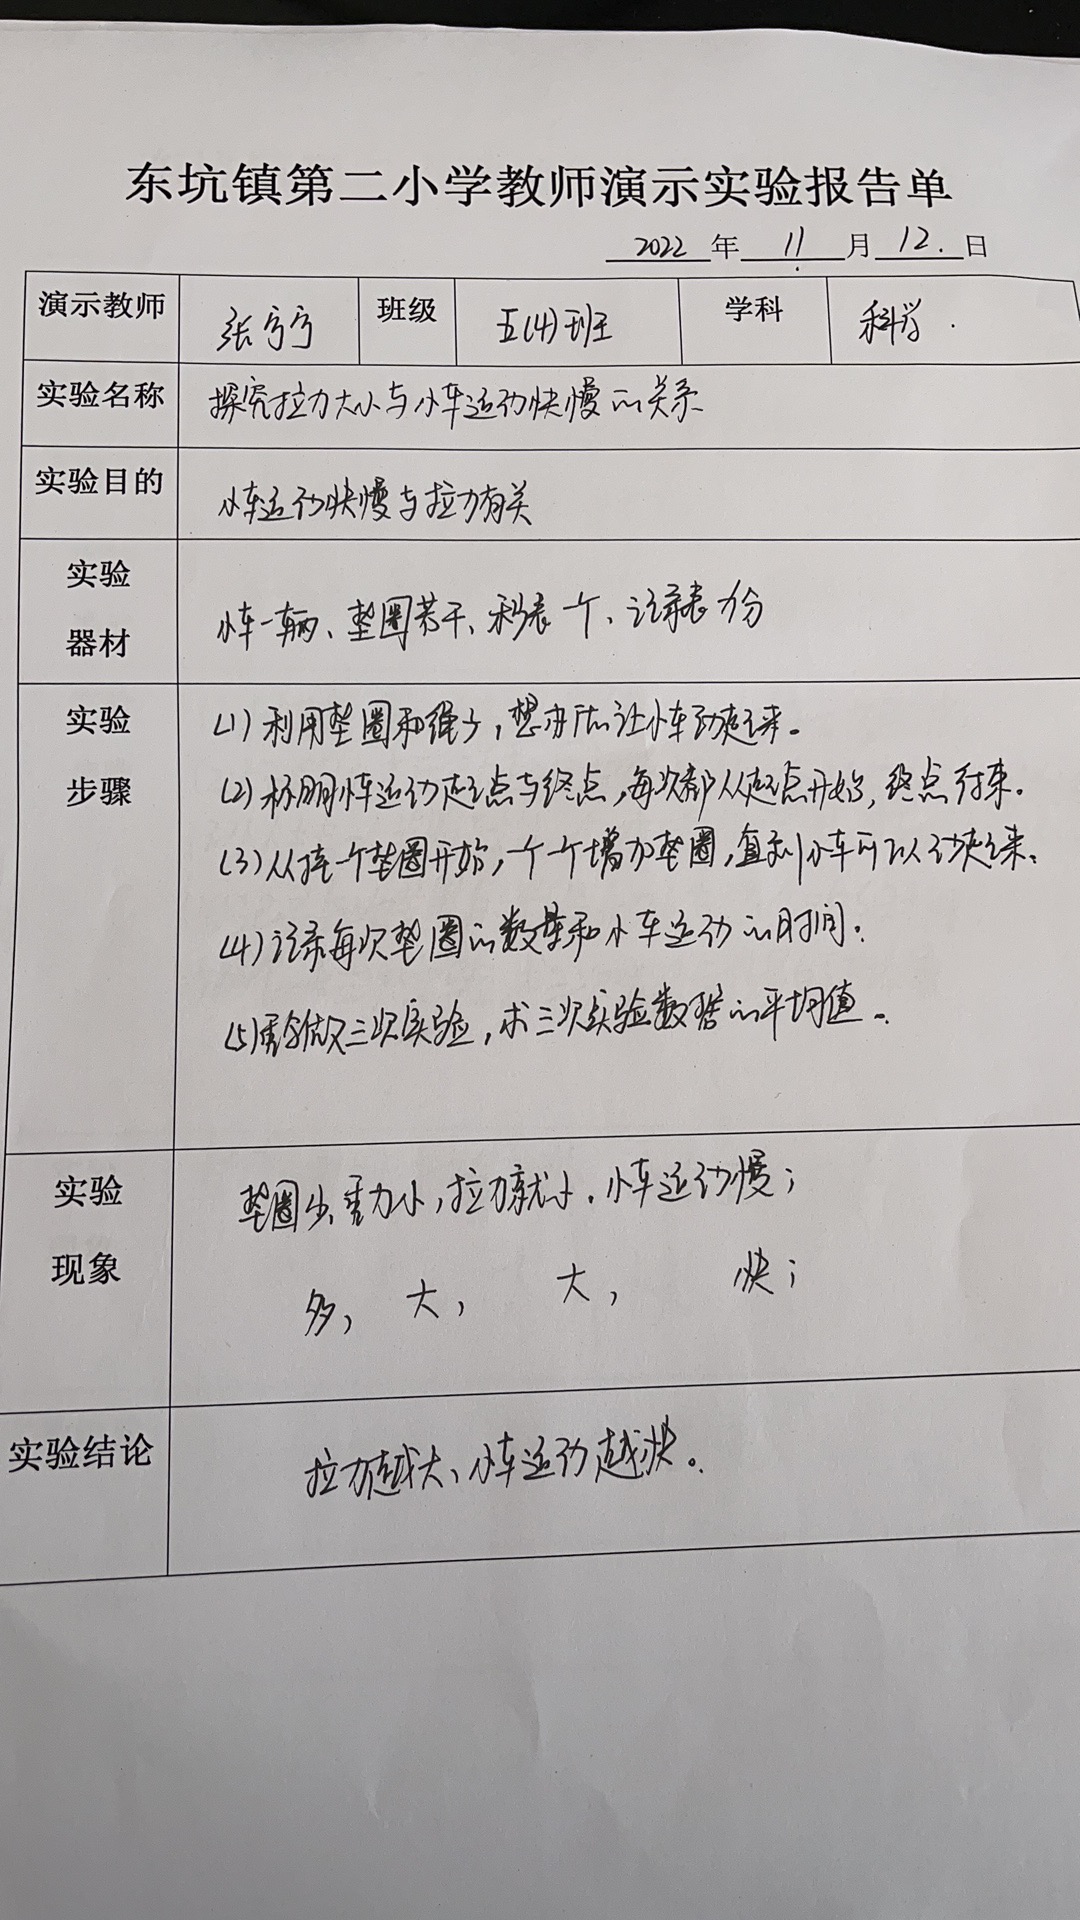 东坑镇第二小学教师演示实验报告单
2022 年 11 月 12. 日
演示教师 张宁宁 班级 五(4)班 学科 科学.
实验名称 探究拉力大小与小车运动快慢的关系
实验目的 小车运动快慢与拉力有关
实验
器材
小车一辆、垫圈若干、秒表一个、记录表 份
实验
步骤
(1)利用垫圈和绳子,想办法让小车动起来。
(2)标明小车运动起点与终点,每次都从起点开始,终点结束。
(3)从挂一个垫圈开始,一个一个增加垫圈,直到小车可以动起来。
(4)记录每次垫圈的数量和小车运动的时间。
(5) 做三次实验,求三次实验数据的平均值。
实验
现象
垫圈少,重力小,拉力就小,小车运动慢;
多, 大, 大, 快;
实验结论 拉力越大、小车运动越快。